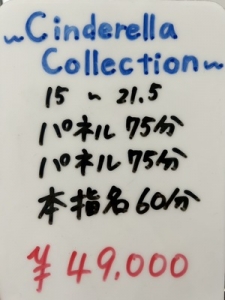 ~Cinderella
Collection~
15 ~ 21.5
パネル 75分
パネル 75分
本指名 60分
¥ 49,000